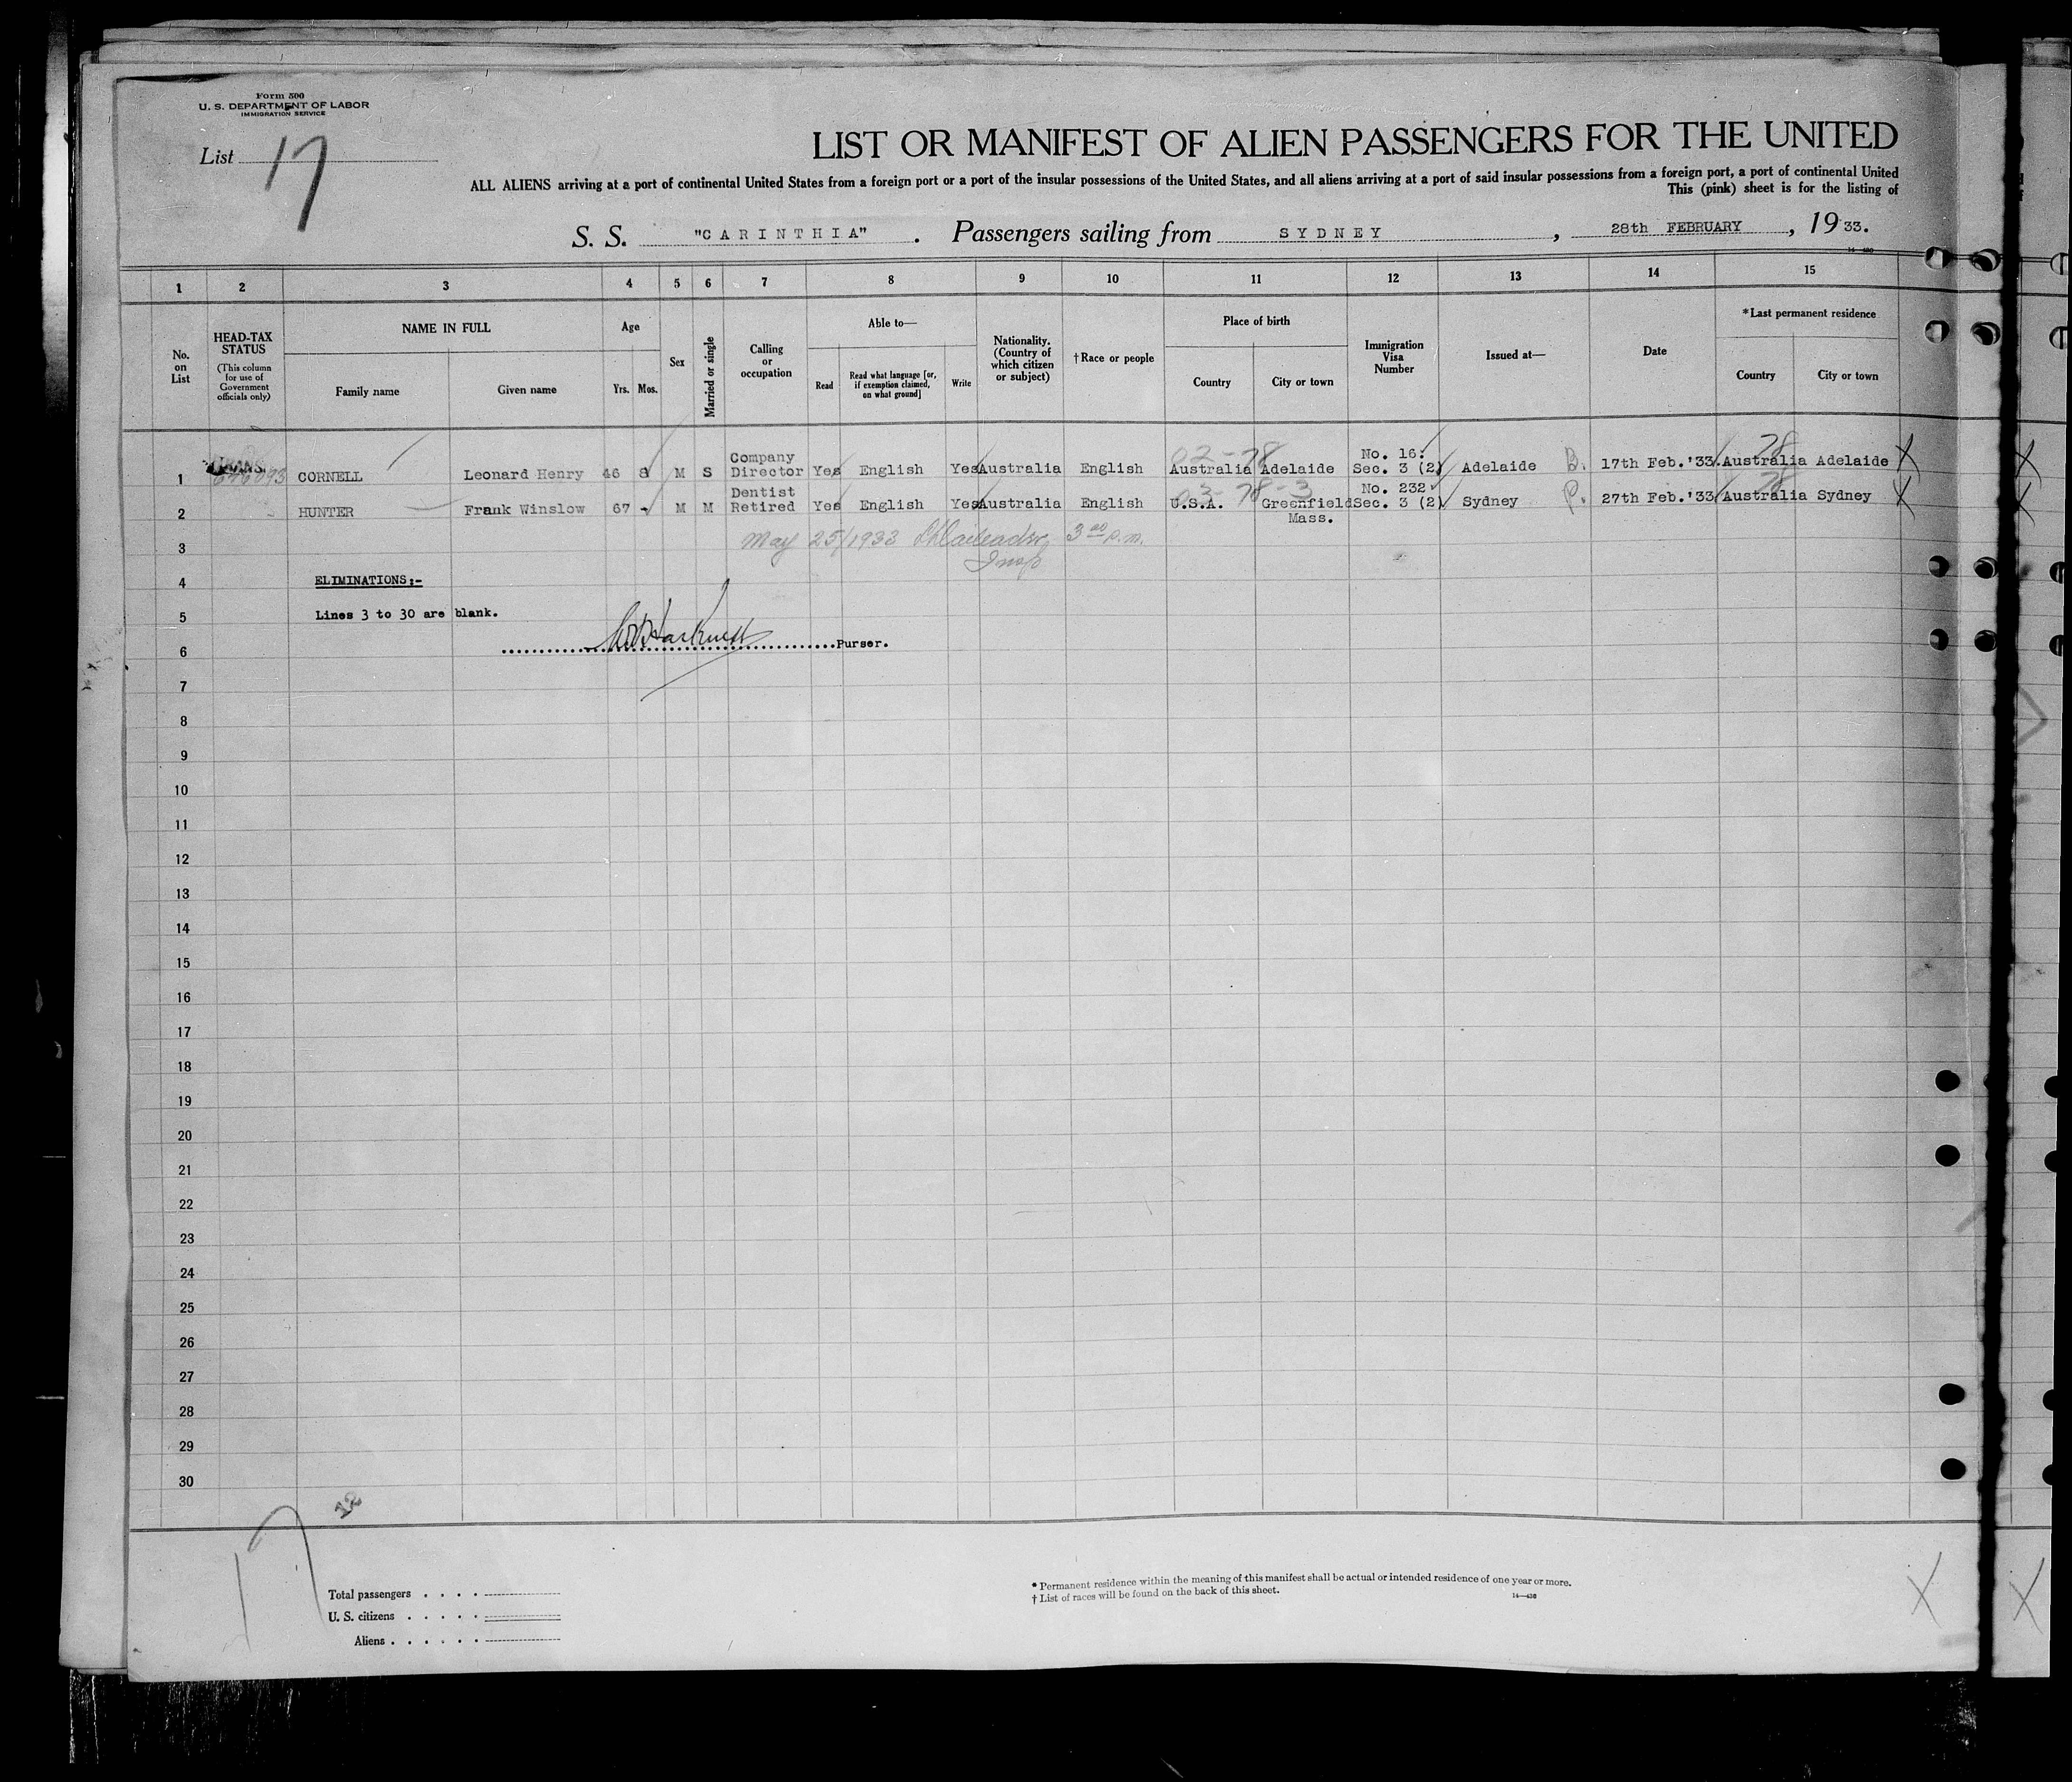 Form 500
U. S. DEPARTMENT OF LABOR
IMMIGRATION SERVICE
List 17
LIST OR MANIFEST OF ALIEN PASSENGERS FOR THE UNITED
ALL ALIENS arriving at a port of continental United States from a foreign port or a port of the insular possessions of the United States, and all aliens arriving at a port of said insular possessions from a foreign port, a port of continental United
This (pink) sheet is for the listing of
S. S. "CARINTHIA". Passengers sailing from SYDNEY, 28th FEBRUARY, 1933.
1 2 3 4 5 6 7 8 9 10 11 12 13 14 15
No. on List
HEAD-TAX STATUS
(This column for use of Government officials only)
NAME IN FULL
Family name Given name
Age
Yrs. Mos.
Sex
Married or single
Calling or occupation
Able to—
Read
Read what language [or, if exemption claimed, on what ground]
Write
Nationality. (Country of which citizen or subject)
†Race or people
Place of birth
Country City or town
Immigration Visa Number
Issued at—
Date
*Last permanent residence
Country City or town
02-78 78
1 TRANS. CORNELL Leonard Henry 46 8 M S Company Director Yes English Yes Australia English Australia Adelaide No. 16. Sec. 3 (2) Adelaide B. 17th Feb.'33. Australia Adelaide X
03-78-3 78
2 HUNTER Frank Winslow 67 - M M Dentist Retired Yes English Yes Australia English U.S.A. Greenfield Mass. No. 232 Sec. 3 (2) Sydney P. 27th Feb.'33 Australia Sydney X
3 May 25/1933 3 00 p.m.
Insp
4 ELIMINATIONS:-
5 Lines 3 to 30 are blank.
6 Purser.
7
8
9
10
11
12
13
14
15
16
17
18
19
20
21
22
23
24
25
26
27
28
29
30
17
12
Total passengers
U. S. citizens
Aliens
* Permanent residence within the meaning of this manifest shall be actual or intended residence of one year or more.
† List of races will be found on the back of this sheet.
14—430
X X